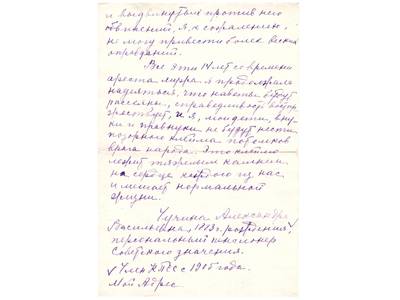 и выдвинутых против него
обвинений, я, к сожалению,
не могу привести более веских
оправданий.
Все эти 14 лет со времени
ареста мужа я продолжала
надеяться, что наветы будут
рассеяны, справедливость востор-
жествует, и я, мои дети, вну-
ки и правнуки не будут нести
позорного клейма потомков
врага народа. Это клеймо
лежит тяжелым камнем
на сердце каждого из нас
и мешает нормальной
жизни.
Чучина Александра
Васильевна, рождения,
персональный пенсионер
союзного значения.
Член КПСС с 1905 года.
Мой Адрес